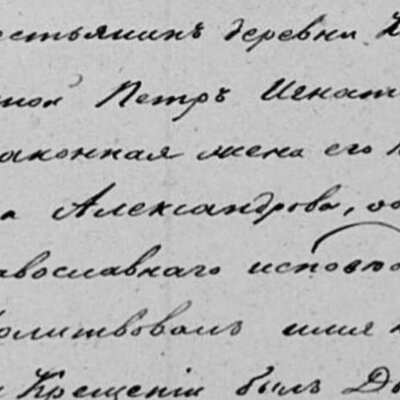 естьянинъ деревни К
ной Петръ Игнать
аконная жена его
а Александрова, об
авославнаго исповѣ
Молитвовалъ имя н
и Крещеніи былъ Дь